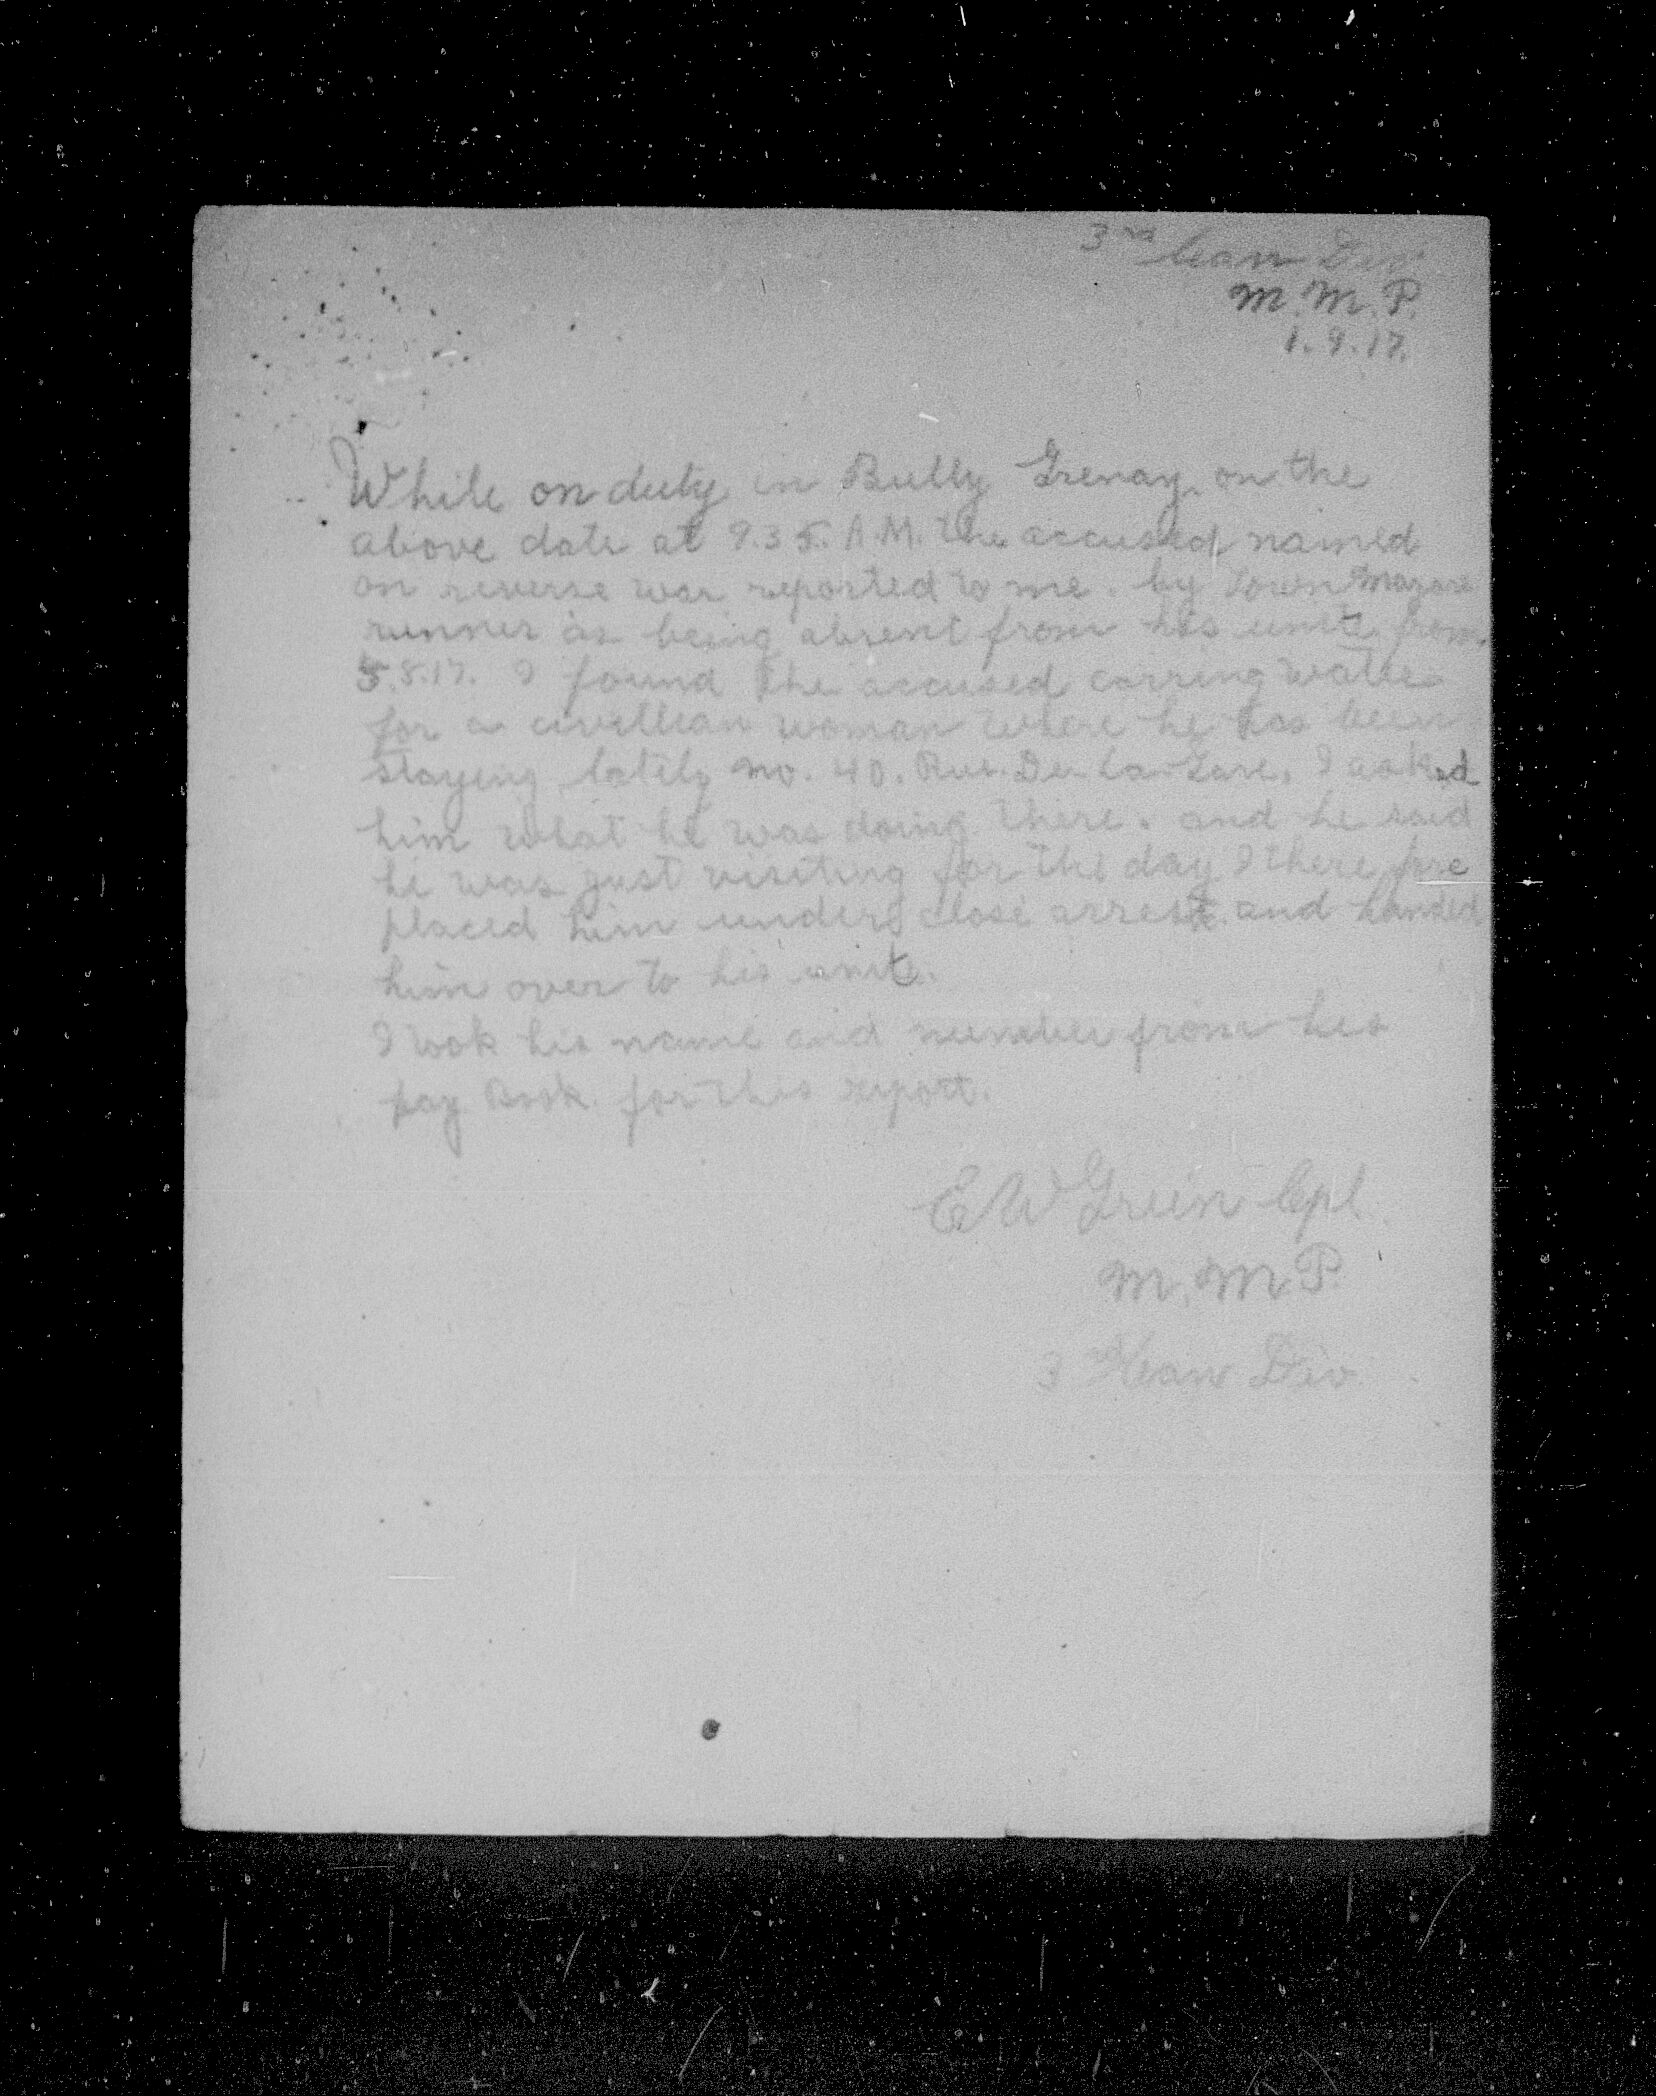 3rd Can Div
M.M.P.
1.9.17.
While on duty in Bully Grenay. on the
above date at 9.35. A.M. the accused named
on reverse was reported to me. by Town Majors
runner as being absent from his unit. from
5.8.17. I found the accused carring water
for a civillian woman where he has been
staying lately no. 40. Rue. De La Gare. I asked
him what he was doing there. and he said
he was just visiting for the day I there fore
placed him under close arrest. and handed
him over to his unit.
I took his name and number from his
pay Book. for this report.
E W Green Cpl.
M.M.P.
3rd Can Div